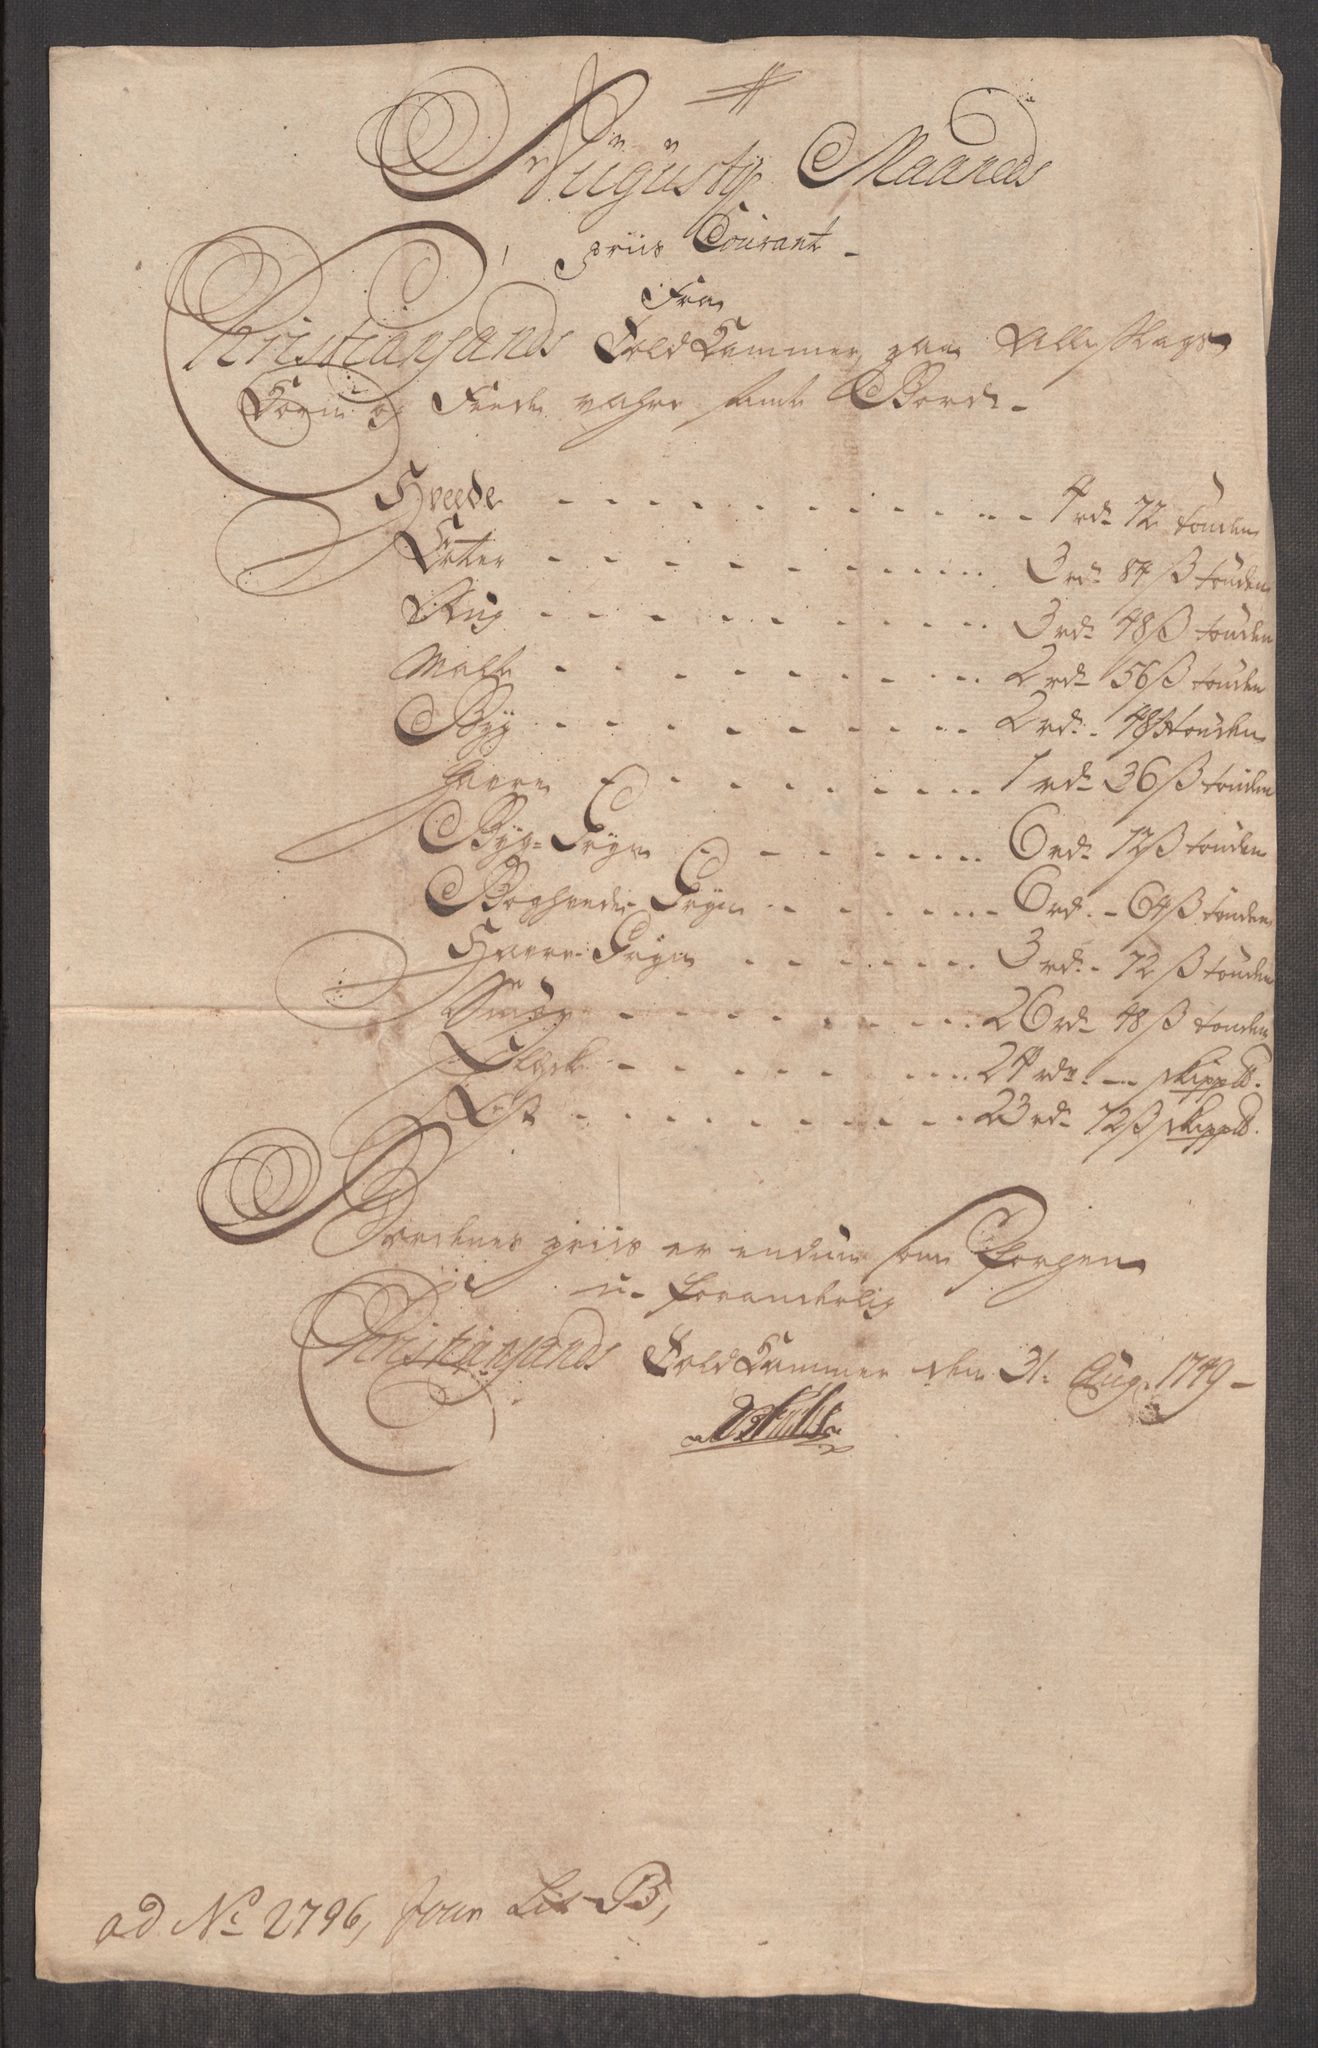 Augustÿ Maaneds
priis Courant
Fra
Christiansands Told Kammer, paa Alle slags
Korn og Feede vahre samt Bord.
Hveede - 4 rd 72 tønden
Erter - 3 rd 84 ß tønden
Rug - 3 rd 48 ß tønden
Malt - 2 rd 56 ß tønden
Byg - 2 rd. 48 ß tønden
Havre - 1 rd 36 ß tønden
Byg-Gryn - 6 rd 12 ß tønden
Boghvede Gryn - 6 rd. 64 ß tønden
Havre-Gryn - 3 rd. 72 ß tønden
Smør - 26 rd 48 ß tønden
24 rd. - skippd.
23 rd 72 ß skippd.
Bordenes priis er endnu som forgen
u-foranderlig
Christiansands Told Kammer den 31. Aug. 1749
ad No 2796, Jour Lit B,